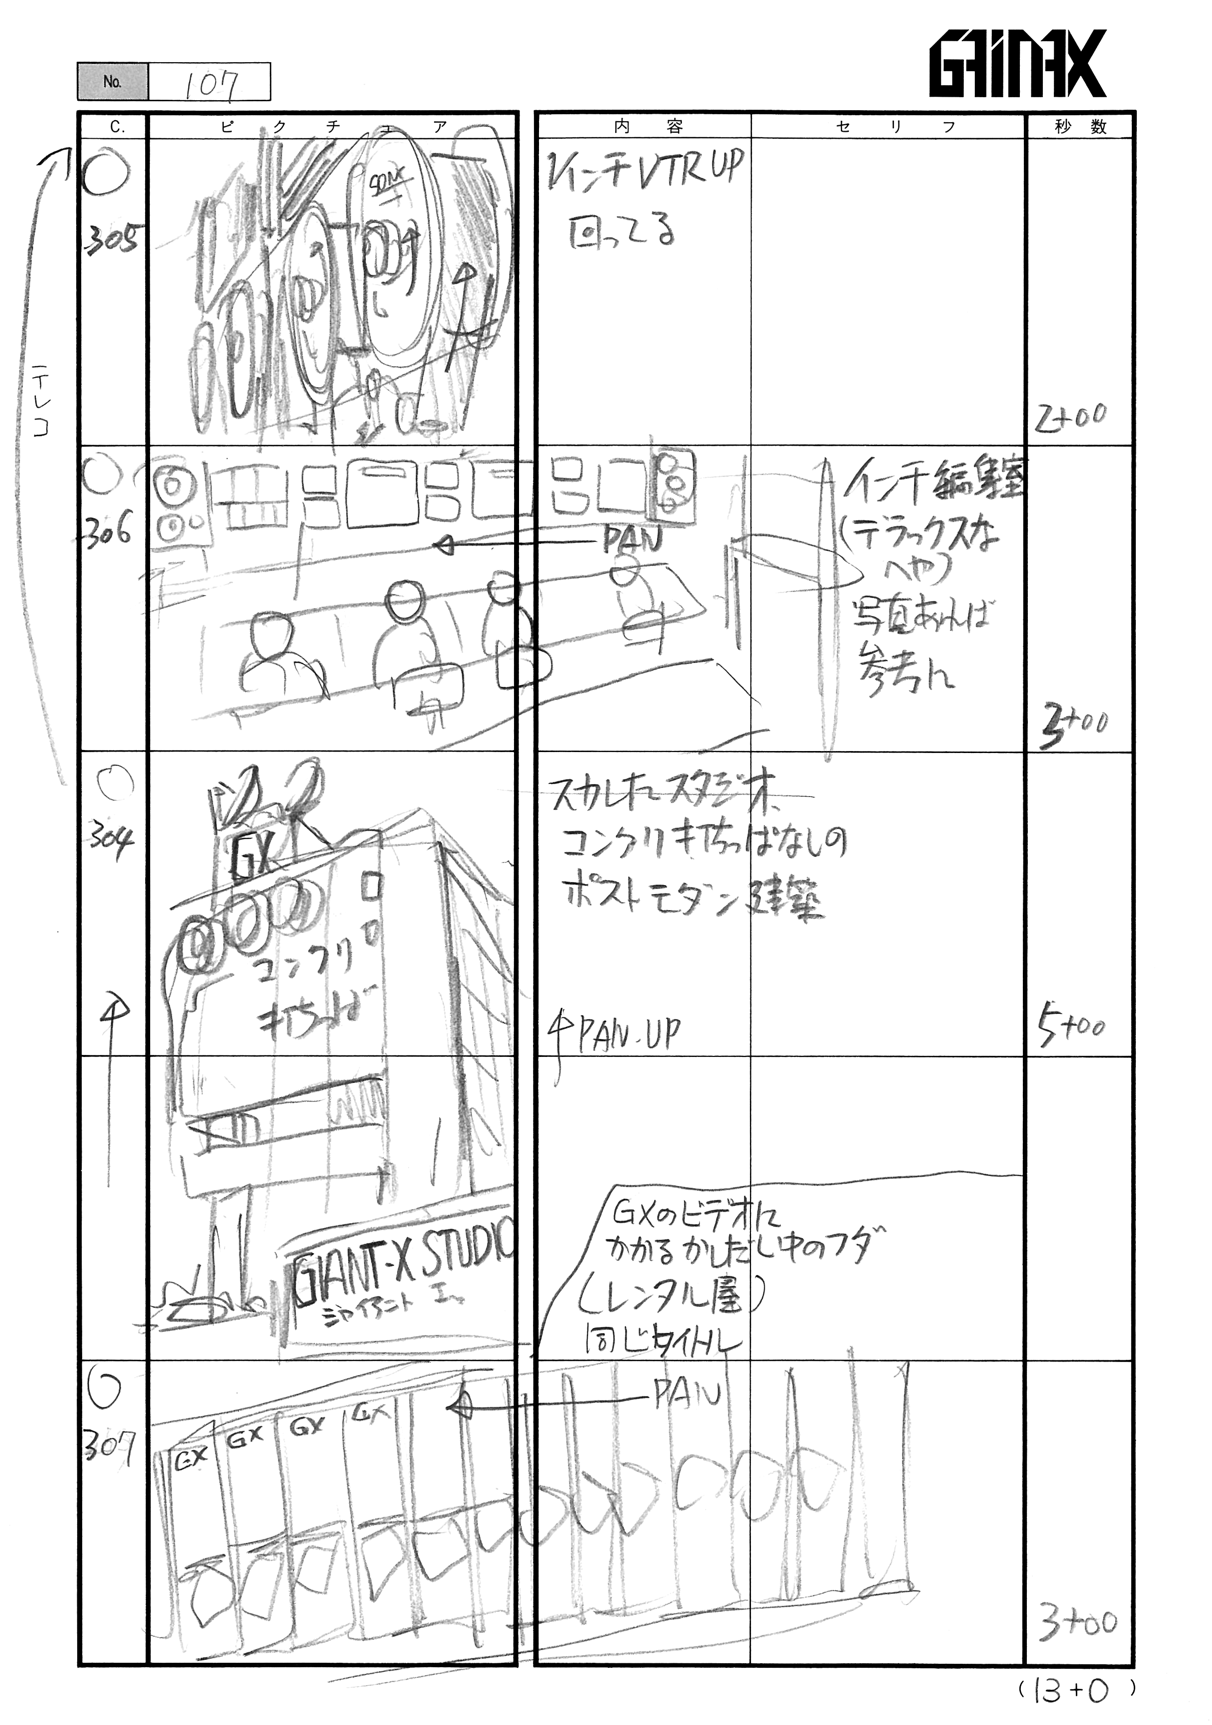 GAINAX
No. 107
C. ピクチュア 内容 セリフ 秒数
テレコ
305
SONY
1インチVTR UP
回ってる
2+00
306
PAN
インチ編集室
(デラックスな
へや)
写真あれば
参考に
3+00
304
GX
コンクリ
打ちっぱ
スカしたスタジオ
コンクリ打ちっぱなしの
ポストモダン建築
↑PAN.UP
5+00
GIANT-X STUDIO
ジャイアント
GXのビデオに
かかるかしだし中のフダ
(レンタル屋)
同じタイトル
307
PAN
GX GX GX GX
3+00
(13+0)